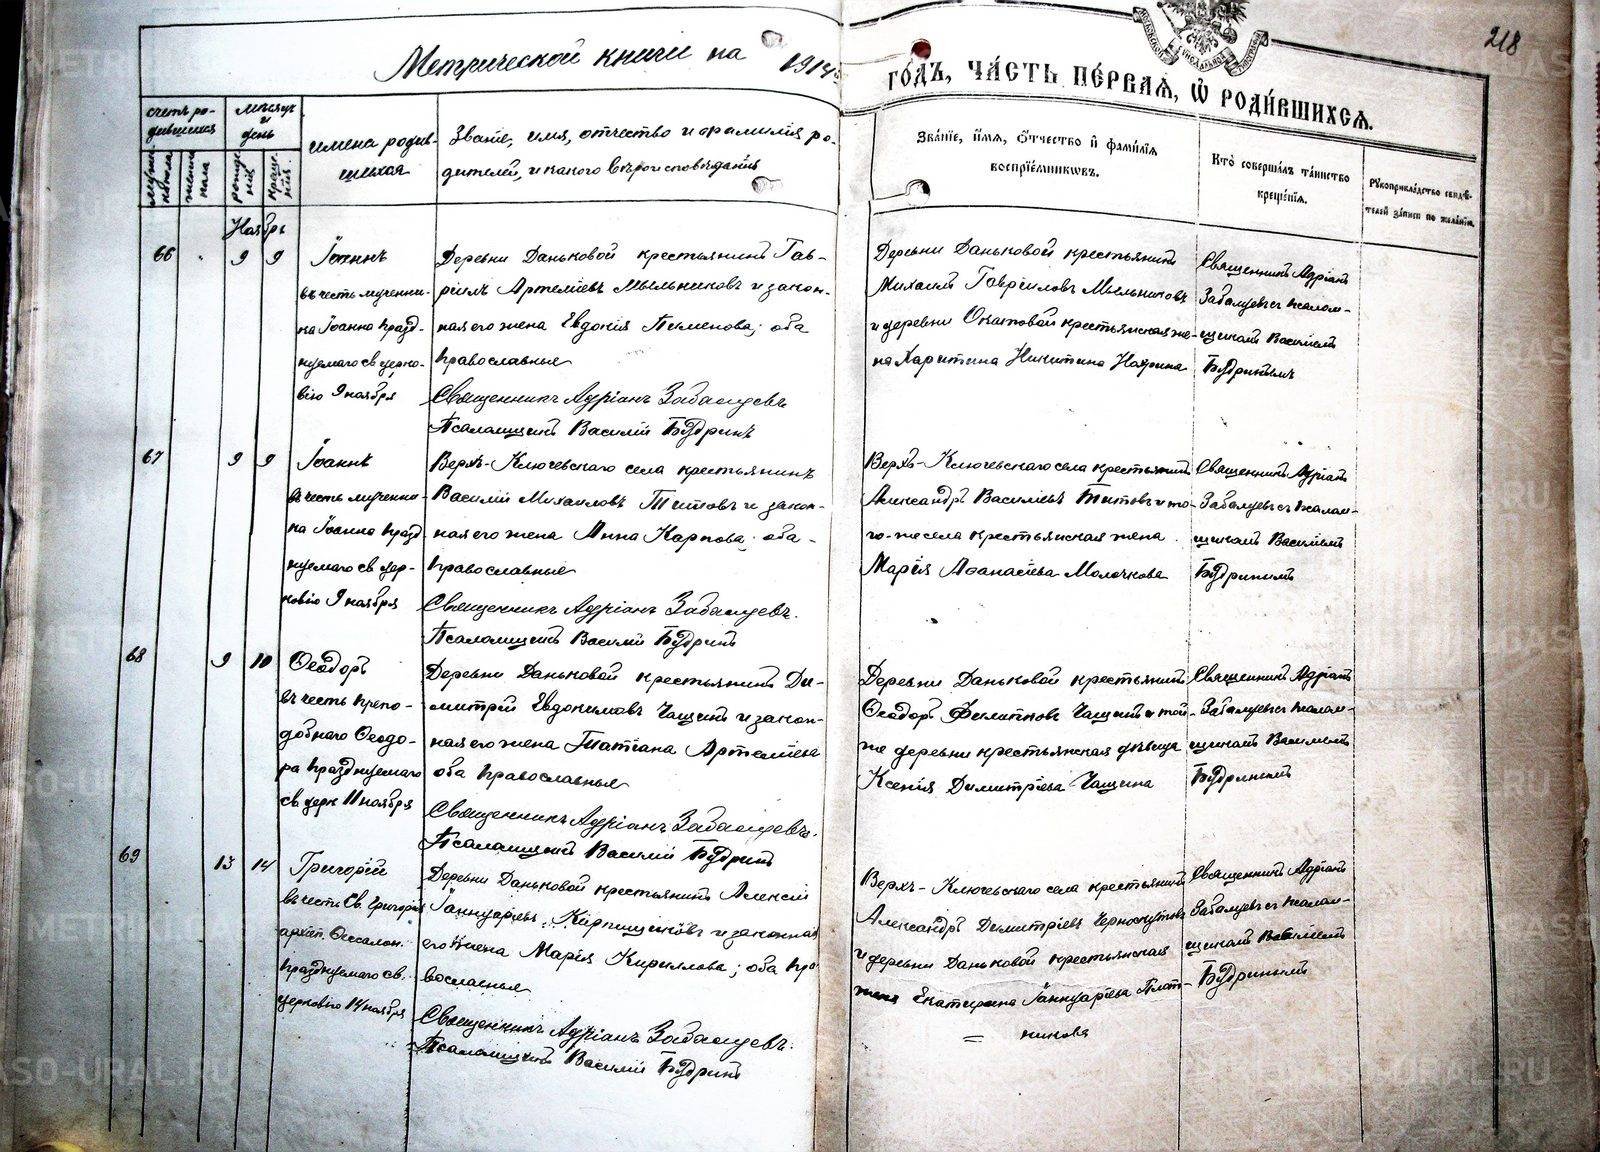 218
Метрической книги на 1914
годъ, часть первая, ѡ родившихся.
счетъ ро-
дившихся
мѣсяцъ
и
день
имена родив-
шихся
Званіе, имя, отчество и фамилія ро-
дителей, и какого вѣроисповѣданія
Званіе, имя, отчество и фамилія
воспріемниковъ.
Кто совершалъ таинство
крещенія.
Рукоприкладство свидѣ-
телей записи по желанію.
мужес-
кага пола
женска
пола
рожде-
нія
креще-
нія
Ноябрь
66 9 9
Іоаннъ
въ честь мученни-
ка Іоанна празд-
нуемаго св церко-
вію 9 ноября
Деревни Даньковой крестьянинъ Гав-
ріилъ Артеміевъ Мыльниковъ и закон-
ная его жена Евдокія Пименова; оба
православные
Священникъ Адріанъ Забалуевъ
Псаломщикъ Василій Будринъ
Деревни Даньковой крестьянинъ
Михаилъ Гавріиловъ Мыльниковъ
и деревни крестьянская же-
на Харитина Никитина
Священникъ Адріанъ
Забалуевъ съ псалом-
щикомъ Василіемъ
Будринымъ
67 9 9
Іоаннъ
въ честь мученни-
ка Іоанна празд
нуемаго св цер-
ковію 9 ноября
Верхъ-Ключевскаго села крестьянинъ
Василій Михаиловъ Титовъ и закон-
ная его жена Анна Карпова; оба-
православные
Священникъ Адріанъ Забалуевъ.
Псаломщикъ Василій Будринъ
Верхъ-Ключевскаго села крестьянинъ
Александръ Василіевъ Титовъ и то-
го-же села крестьянская жена
Марія Афанасіева Молочкова
Священникъ Адріанъ
Забалуевъ съ псалом-
щикомъ Василіемъ
Будринымъ
68 9 10
Ѳеодоръ
въ честь препо-
добнаго Ѳеодо-
ра празднуемаго
св церк 11 ноября
Деревни Даньковой крестьянинъ Ди-
митрій Евдокимовъ Чащинъ и закон-
ная его жена Татіана Артеміева
оба православные
Священникъ Адріанъ Забалуевъ.
Псаломщикъ Василій Будринъ
Деревни Даньковой крестьянинъ
Ѳеодоръ Филипповъ Чащинъ и той-
же деревни крестьянская дѣвица
Ксенія Димитріева Чащина
Священникъ Адріанъ
Забалуевъ съ псалом-
щикомъ Василіемъ
Будринымъ
69 13 14
Григорій
въ честь Св. Григорія
архіеп. Ѳессалон.
празднуемаго св.
церковію 14 ноября
Деревни Даньковой крестьянинъ Алексій
Іаннуаріевъ Кирпищиковъ и законная
его жена Марія Кириллова; оба пра
вославные
Священникъ Адріанъ Забалуевъ.
Псаломщикъ Василій Будринъ
Верхъ-Ключевскаго села крестьянинъ
Александръ Димитріевъ Черноскутовъ
и деревни Даньковой крестьянская
жена Екатерина Іаннуаріева Плот-
= никова
Священникъ Адріанъ
Забалуевъ съ псалом-
щикомъ Василіемъ
Будринымъ